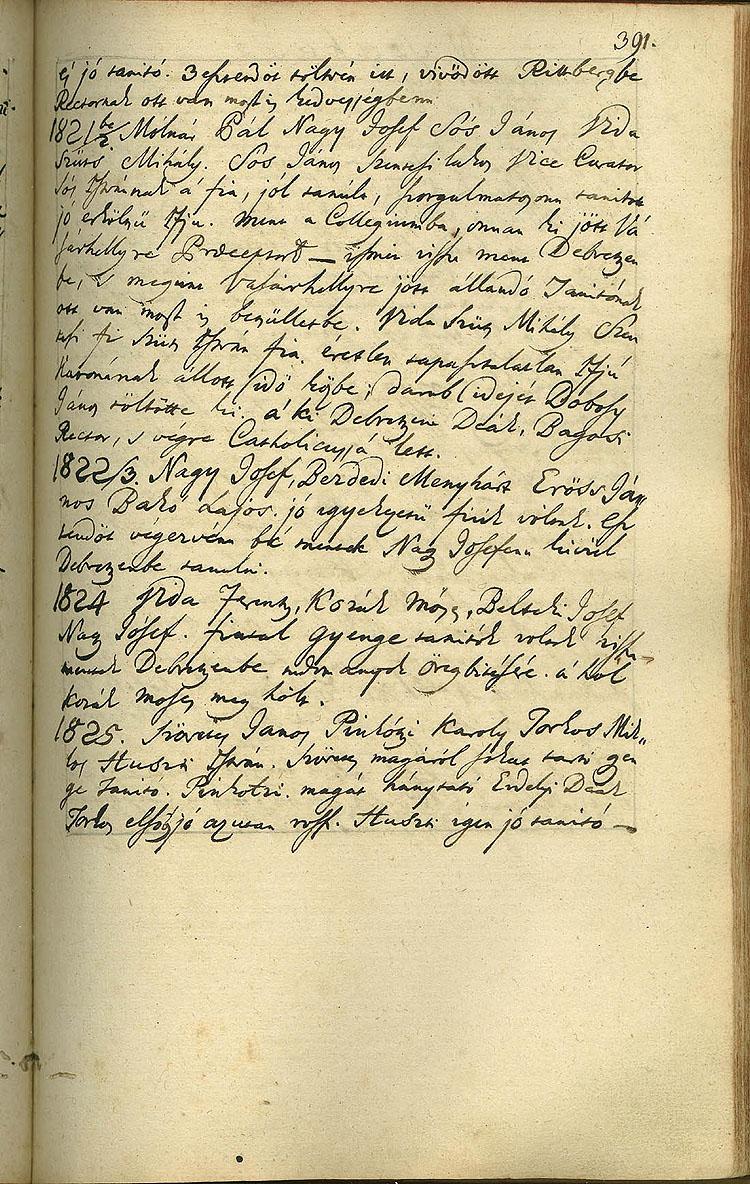 391.
és jó tanitó. 3 esztendőt töltvén itt, vivődött Rittbergbe
Rectornak ott van most is kedvességbenn
1821/2 be Mólnár Pál Nagy Josef Sós János Vida
Szűts Mihály. Sós János Szentesi lakos Vice Curator
Sós Istvánnak a fia, jól tanúlt, szorgalmatosonn tanitott
jó erkőltsű Ifju. ment a Collegiumba, onnan ki jött Vá
sárhellyre Præceptort — ismét vissza ment Debretzen
be, s megint Vasárhellyre jött állandó Tanitónak
ott van most is betsülletbe. Vida Szűts Mihály Szen
tesi fi Szűts Istvan fia. éretlen tapasztalatlan Ifjú
Katonának állott idő közbe; darab idejét Dobosy
János töltötte ki, a ki Debretzeni Deák, Bagosi
Rector, s végre Catholicussá lett.
1822/3. Nagy Josef, Berdedi Menyhárt Erőss Já„
nos Bakó Lajos. jó igyekezetű fiúk vóltak. Esz
tendőt végezvénn bé mentek Nagy Josefenn kivűl
Debretzenbe tanúlni.
1824 Vida Ferentz, Kozák Móses, Belteki Jósef
Nagy Jósef. fiatal gyenge tanitók voltak vissza
mentek Debretzenbe tudományok öregbitésére. a hol
Kozák Moses meg hólt.
1825. Szővetes Janos Pinkótzi Karoly Torkos Mik„
los Huszti István. Szővetes magáról sokat tartó gyen
ge tanitó. Pinkotzi. magát hánytató Erdelyi Deák
Torkos elsőbb jó azutan rossz. Huszti igen jó tanitó —